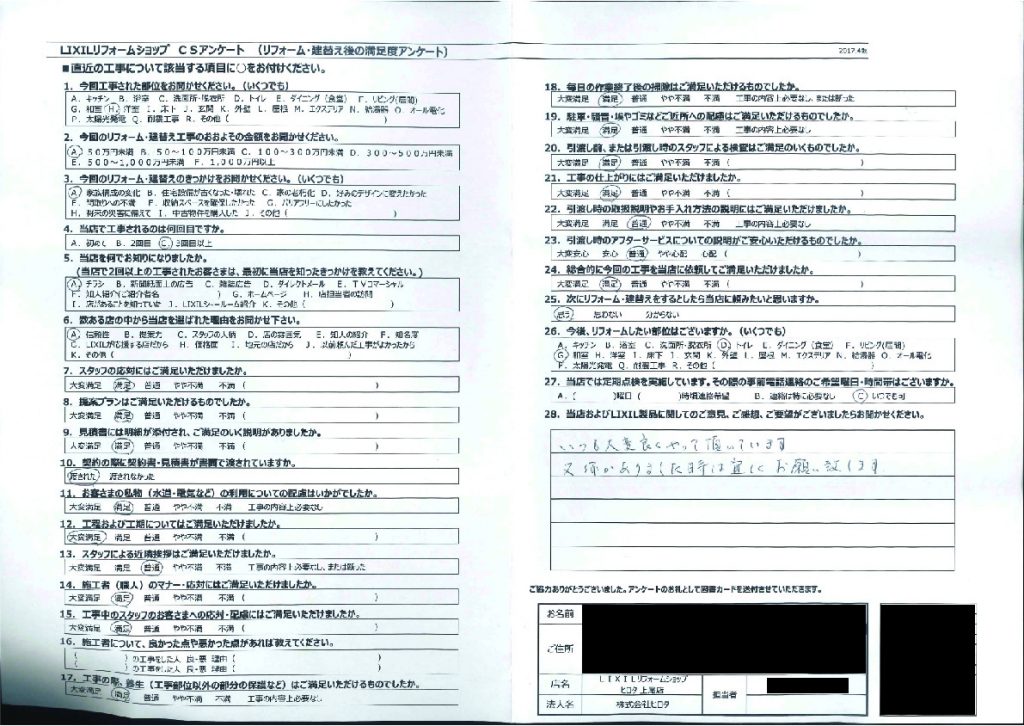 LIXILリフォームショップ CSアンケート (リフォーム・建替え後の満足度アンケート)
2017.4改
■直近の工事について該当する項目に○をお付けください。
1. 今回工事された部位をお聞かせください。(いくつでも)
A. キッチン B. 浴室 C. 洗面所・脱衣所 D. トイレ E. ダイニング(食堂) F. リビング(居間)
G. 和室 H. 洋室 I. 床下 J. 玄関 K. 外壁 L. 屋根 M. エクステリア N. 給湯器 O. オール電化
P. 太陽光発電 Q. 耐震工事 R. その他(
2. 今回のリフォーム・建替え工事のおおよその金額をお聞かせください。
A. 50万円未満 B. 50~100万円未満 C. 100~300万円未満 D. 300~500万円未満
E. 500~1,000万円未満 F. 1,000万円以上
3. 今回のリフォーム・建替えのきっかけをお聞かせください。(いくつでも)
A. 家族構成の変化 B. 住宅設備が古くなった・壊れた C. 家の老朽化 D. 好みのデザインに変えたかった
E. 間取りへの不満 F. 収納スペースを確保したかった G. バリアフリーにしたかった
H. 将来の災害に備えて I. 中古物件を購入した J. その他( )
4. 当店で工事されるのは何回目ですか。
A. 初めて B. 2回目 C. 3回目以上
5. 当店を何でお知りになりましたか。
(当店で2回以上の工事されたお客さまは、最初に当店を知ったきっかけを教えてください。)
A. チラシ B. 新聞紙面上の広告 C. 雑誌広告 D. ダイレクトメール E. TVコマーシャル
F. 知人紹介(ご紹介者名 ) G. ホームページ H. 店担当者の訪問
I. 店があることを知っていた J. LIXILショールーム紹介 K. その他( )
6. 数ある店の中から当店を選ばれた理由をお聞かせ下さい。
A. 信頼性 B. 提案力 C. スタッフの人柄 D. 店の雰囲気 E. 知人の紹介 F. 知名度
G. LIXILが応援する店だから H. 価格度 I. 地元の店だから J. 以前頼んだ工事がよかったから
K. その他( )
7. スタッフの応対にはご満足いただけましたか。
大変満足 満足 普通 やや不満 不満 ( )
8. 提案プランはご満足いただけるものでしたか。
大変満足 満足 普通 やや不満 不満 ( )
9. 見積書には明細が添付され、ご満足のいく説明がありましたか。
大変満足 満足 普通 やや不満 不満 ( )
10. 契約の際に契約書・見積書が書面で渡されていますか。
渡された 渡されなかった
11. お客さまの私物(水道・電気など)の利用についての配慮はいかがでしたか。
大変満足 満足 普通 やや不満 不満 工事の内容上必要なし
12. 工程および工期についてはご満足いただけましたか。
大変満足 満足 普通 やや不満 不満 ( )
13. スタッフによる近隣挨拶はご満足いただけましたか。
大変満足 満足 普通 やや不満 不満 工事の内容上必要なし、または断った
14. 施工者(職人)のマナー・応対にはご満足いただけましたか。
大変満足 満足 普通 やや不満 不満 ( )
15. 工事中のスタッフのお客さまへの応対・配慮にはご満足いただけましたか。
大変満足 満足 普通 やや不満 不満 ( )
16. 施工者について、良かった点や悪かった点があれば教えてください。
( )の工事をした人 良・悪 理由( )
( )の工事をした人 良・悪 理由( )
17. 工事の際、養生(工事部位以外の部分の保護など)はご満足いただけるものでしたか。
大変満足 満足 普通 やや不満 不満 工事の内容上必要なし
18. 毎日の作業終了後の掃除はご満足いただけるものでしたか。
大変満足 満足 普通 やや不満 不満 工事の内容上必要なし、または断った
19. 駐車・騒音・埃やゴミなどご近所への配慮はご満足いただけるものでしたか。
大変満足 満足 普通 やや不満 不満 工事の内容上必要なし
20. 引渡し前、または引渡し時のスタッフによる検査はご満足のいくものでしたか。
大変満足 満足 普通 やや不満 不満 ( )
21. 工事の仕上がりにはご満足いただけましたか。
大変満足 満足 普通 やや不満 不満 ( )
22. 引渡し時の取扱説明やお手入れ方法の説明にはご満足いただけましたか。
大変満足 満足 普通 やや不満 不満 工事の内容上必要なし
23. 引渡し時のアフターサービスについての説明がご安心いただけるものでしたか。
大変安心 安心 普通 やや心配 心配 ( )
24. 総合的に今回の工事を当店に依頼してご満足いただけましたか。
大変満足 満足 普通 やや不満 不満 ( )
25. 次にリフォーム・建替えをするとしたら当店に頼みたいと思いますか。
思う 思わない 分からない
26. 今後、リフォームしたい部位はございますか。(いくつでも)
A. キッチン B. 浴室 C. 洗面所・脱衣所 D. トイレ E. ダイニング(食堂) F. リビング(居間)
G. 和室 H. 洋室 I. 床下 J. 玄関 K. 外壁 L. 屋根 M. エクステリア N. 給湯器 O. オール電化
P. 太陽光発電 Q. 耐震工事 R. その他( )
27. 当店では定期点検を実施しています。その際の事前電話連絡のご希望曜日・時間帯はございますか。
A. ( )曜日( )時頃連絡希望 B. 連絡は特に必要なし C. いつでも可
28. 当店およびLIXIL製品に関してのご意見、ご感想、ご要望がございましたらお聞かせください。
いつも大変良くやって頂いています
又何かありました時は宜しくお願い致します
ご協力ありがとうございました。アンケートのお礼として図書カードを送付させていただきます。
お名前
ご住所
店名 LIXILリフォームショップ ヒロタ上尾店 担当者
法人名 株式会社ヒロタ